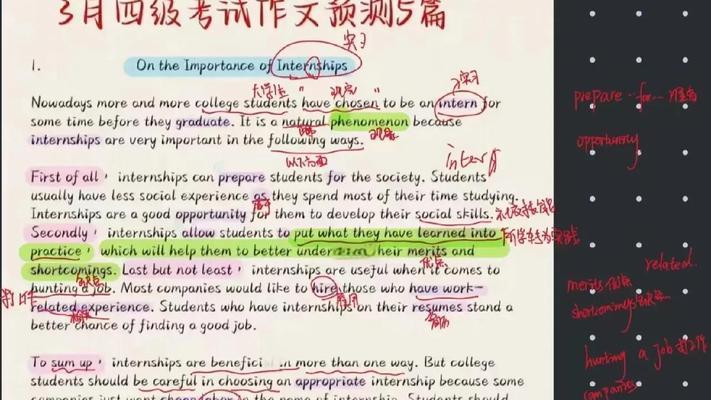 3月四级考试作文预测5篇
实习
1. On the Importance of Internships
大学生 观点 实习
Nowadays more and more college students have chosen to be an intern for
prepare for 准备
some time before they graduate. It is a natural phenomenon because
internships are very important in the following ways.
opportunity
以下方面
intern
First of all, internships can prepare students for the society. Students
usually have less social experience as they spend most of their time studying.
Internships are a good opportunity for them to develop their social skills.
Secondly, internships allow students to put what they have learned into
practice, which will help them to better understand their merits and
优点
related
shortcomings. Last but not least, internships are useful when it comes to
找工作
merits 优点
hunting a job. Most companies would like to hire those who have work-
雇用
shortcomings 缺点
related experience. Students who have internships on their resumes stand a
简历
better chance of finding a good job.
hunting a job 找工作
To sum up, internships are beneficial in more than one way. But college
students should be careful in choosing an appropriate internship because some
companies
companies just want
in the name of internship. Students should